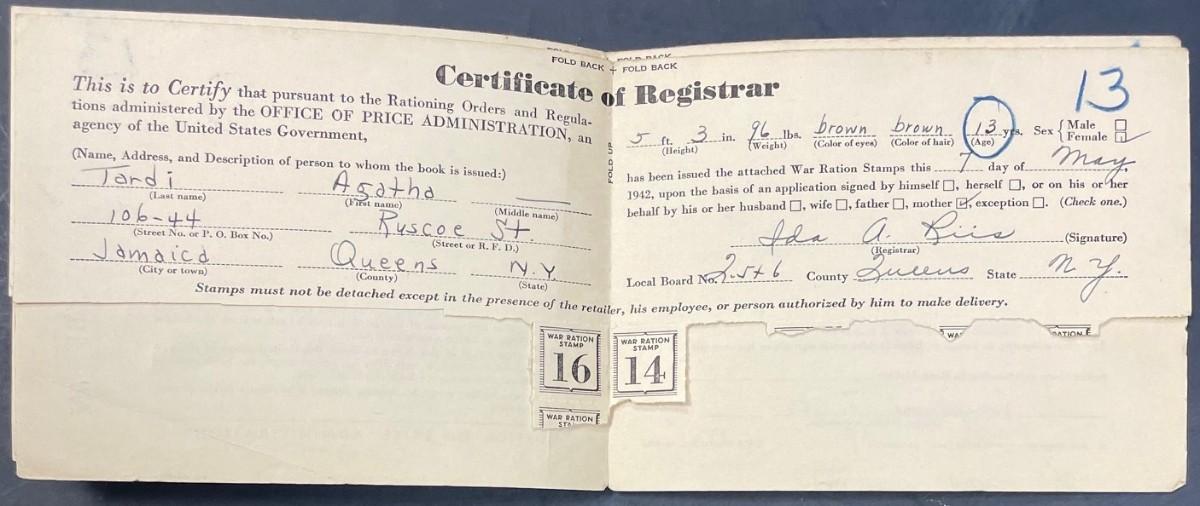 FOLD BACK + FOLD BACK
Certificate of Registrar
This is to Certify that pursuant to the Rationing Orders and Regula-
tions administered by the OFFICE OF PRICE ADMINISTRATION, an
agency of the United States Government,
(Name, Address, and Description of person to whom the book is issued:)
Tardi Agatha
(Last name) (First name) (Middle name)
106-44 Ruscoe St.
(Street No. or P. O. Box No.) (Street or R. F. D.)
Jamaica Queens N.Y.
(City or town) (County) (State)
FOLD UP
13
5 ft. 3 in. 96 lbs. brown brown 13 yrs. Sex { Male ☐
(Height) (Weight) (Color of eyes) (Color of hair) (Age) Female ☑
has been issued the attached War Ration Stamps this 7 day of May,
1942, upon the basis of an application signed by himself ☐, herself ☐, or on his or her
behalf by his or her husband ☐, wife ☐, father ☐, mother ☑, exception ☐. (Check one.)
Ida A. Riis (Signature)
(Registrar)
Local Board No. County Queens State N.Y.
Stamps must not be detached except in the presence of the retailer, his employee, or person authorized by him to make delivery.
WAR RATION
STAMP
16
WAR RATION
STAMP
14
WAR RATION